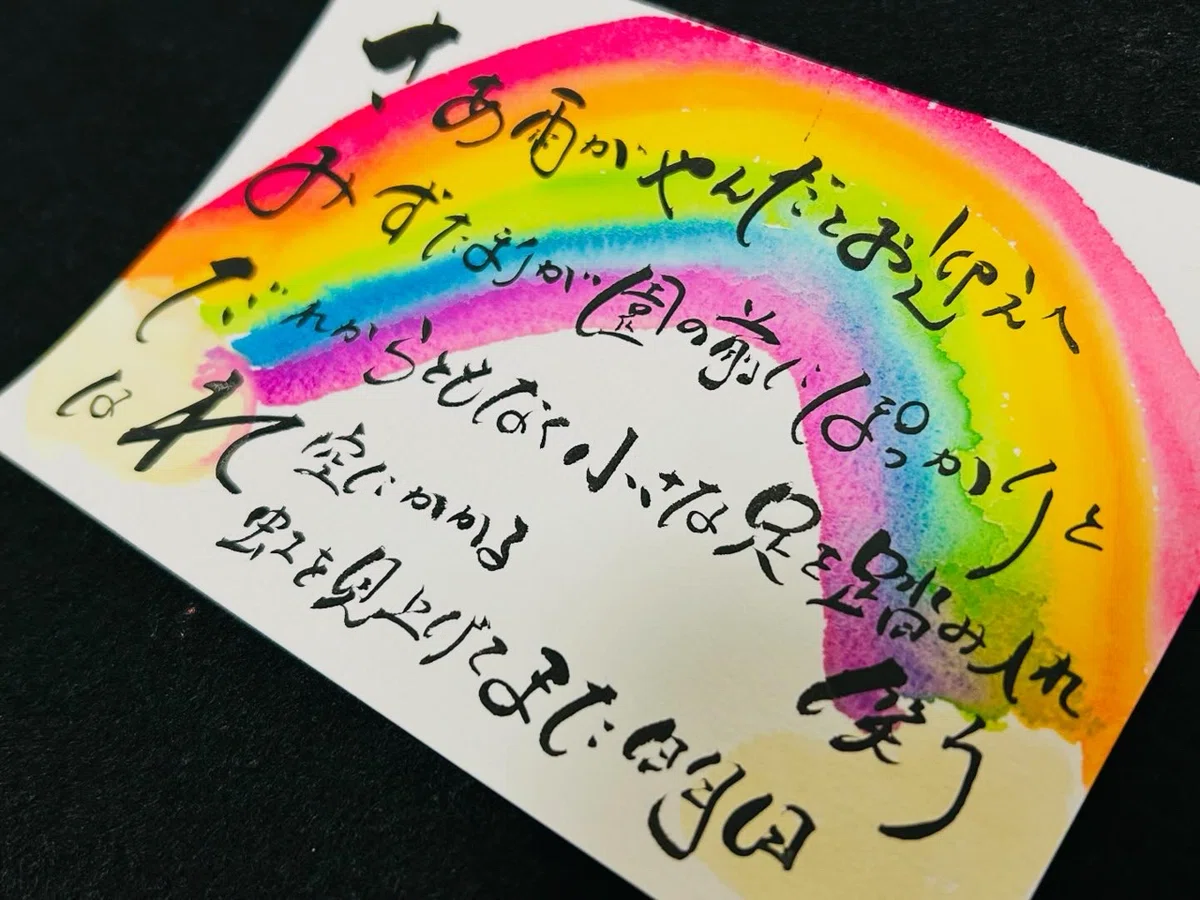 さあ雨がやんだとお迎えへ
みずたまりが園の前にぽっかりと
だれからともなく小さな足を踏み入れ笑う
はれ空にかかる
虹を見上げてまた明日